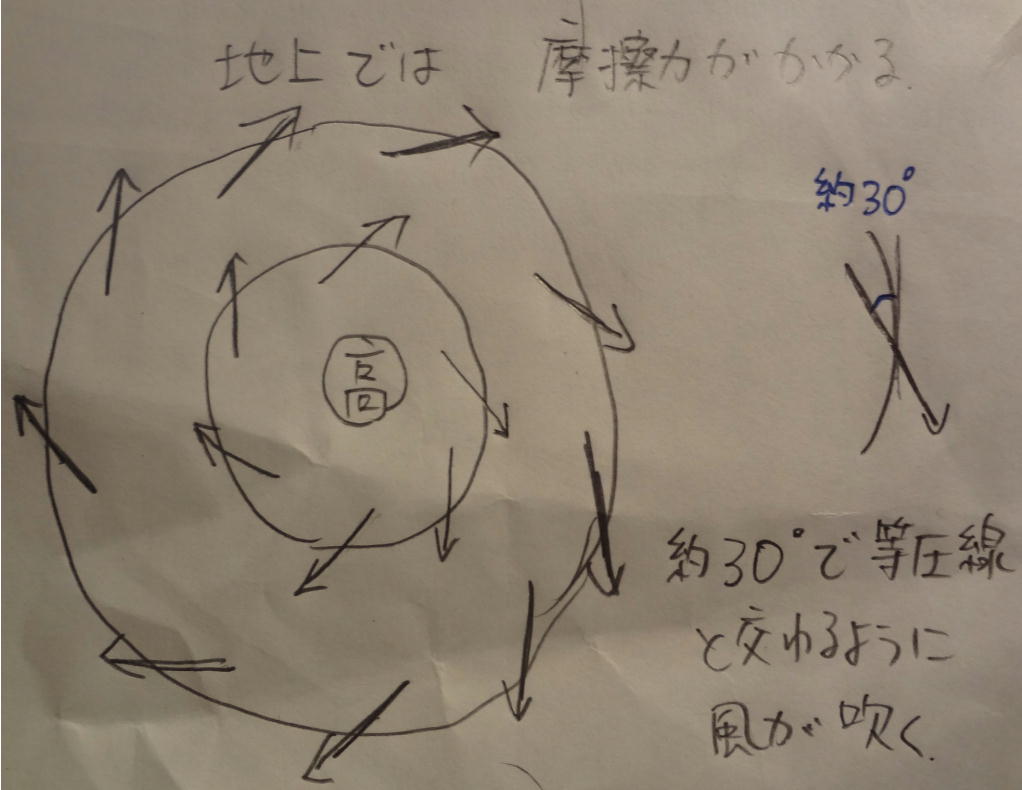 地上では 摩擦力がかかる.
約30°
高
約30°で等圧線
と交わるように
風が吹く.